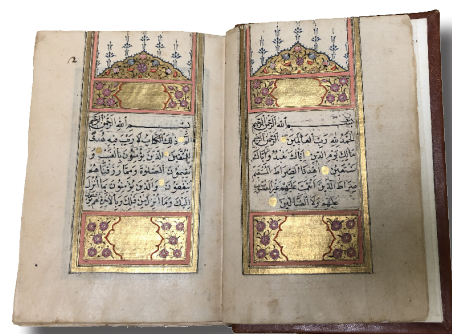 بسم الله الرحمن الرحيم
الحمد لله رب العالمين
مالك يوم الدين اياك نعبد واياك
نستعين اهدنا الصراط المستقيم
صراط الذين انعمت عليهم غير المغضوب
عليهم ولا الضالين
بسم الله الرحمن الرحيم
ذلك الكتاب لا ريب فيه هدى
للمتقين الذين يؤمنون بالغيب و
يقيمون الصلوة ومما رزقناهم
ينفقون والذين يؤمنون بما انزل
اليك وما انزل من قبلك وبالآخرة هم